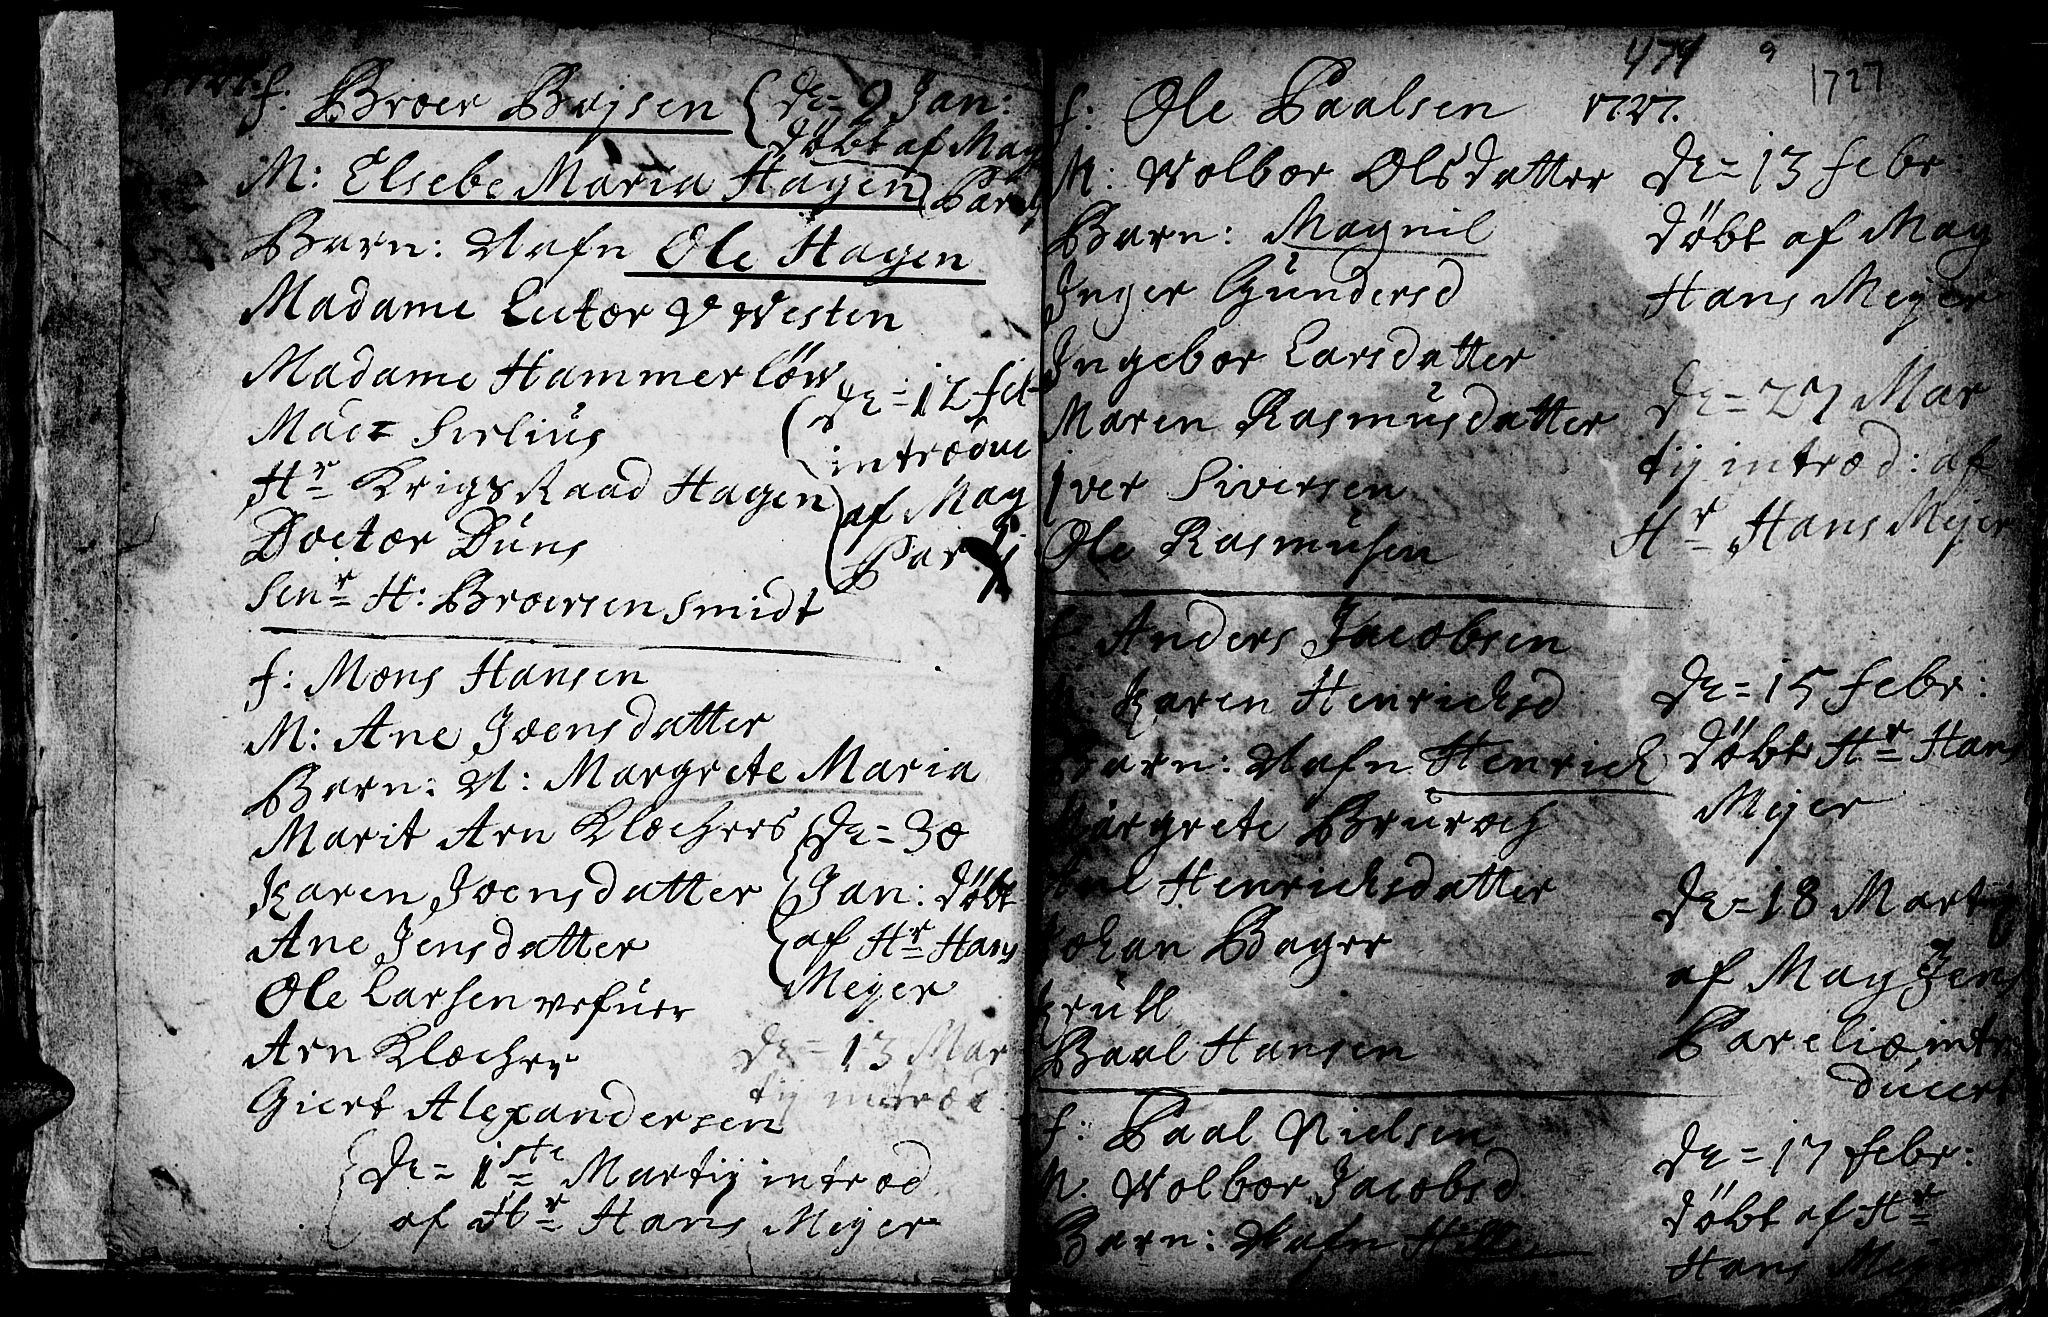 1727. f. Broer Bojsen
M: Elsebe Maria Hagen
Barn: Nafn Ole Hagen
Madame Lector V Westen
Madame Hammerlöw
Sirlius
Hr Krigs Raad Hagen
Doctor Düns
Senr H: Broersen Smidt
De = 9 Jan:
döbt af Mag
De = 12 feb
introdue
af Mag
f: Mons Hansen
M: Ane Joensdatter
Barn: N: Margrete Maria
Marit Arn Klochers
Karen Joensdatter
Ane Jensdatter
Ole Larsen
Arn Klocher
Giert Alexandersen
De = 30
Jan: döbt
af Hr Hans
Mejer
De = 13 Mar
tij introd:
De = 1ste Martij introd
af Hr Hans Mejer
474 9 1727
f: Ole Paalsen 1727.
M: Wolbor Olsdatter
Barn: Magnil
Inger Gundersd
Ingebor Larsdatter
Maren Rasmusdatter
Iver Siversen
Ole Rasmusen
De = 13 febr:
döbt af Mag
Hans Mejer
De = 27 Mar
tij introd: af
Hr Hans Mejer
f Anders Jacobsen
M. Karen Henrichsd
Barn: Nafn Henrich
Margrete Bruroch
Henrichsdatter
Johan Bager
Krull
Baal Hansen
De = 15 febr:
döbt Hr Hans
Mejer
De = 18 Martij
af Mag Jens
Parelio intro
ducert
f: Paal Nielsen
M. Wolbor Jacobsd
Barn: Nafn
De = 17 febr:
döbt af Hr
Hans Mejer